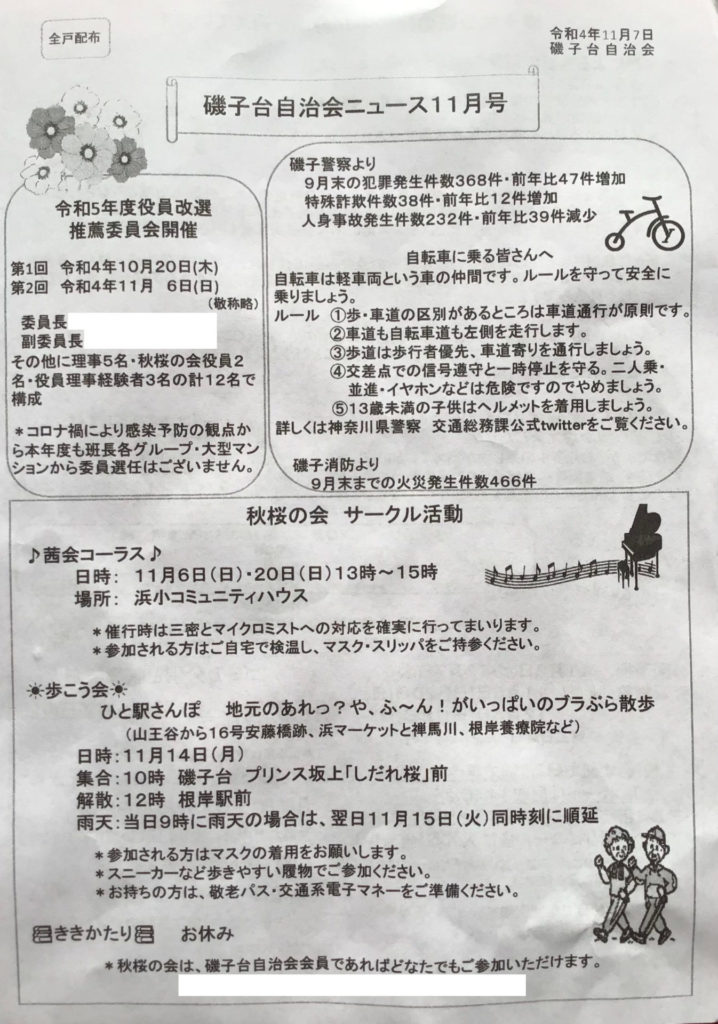 全戸配布
令和4年11月7日
磯子台自治会
磯子台自治会ニュース11月号
令和5年度役員改選
推薦委員会開催
第1回 令和4年10月20日(木)
第2回 令和4年11月 6日(日)
(敬称略)
委員長
副委員長
その他に理事5名・秋桜の会役員2
名・役員理事経験者3名の計12名で
構成
*コロナ禍により感染予防の観点か
ら本年度も班長各グループ・大型マン
ションから委員選任はございません。
磯子警察より
9月末の犯罪発生件数368件・前年比47件増加
特殊詐欺件数38件・前年比12件増加
人身事故発生件数232件・前年比39件減少
自転車に乗る皆さんへ
自転車は軽車両という車の仲間です。ルールを守って安全に
乗りましょう。
ルール ①歩・車道の区別があるところは車道通行が原則です。
②車道も自転車道も左側を走行します。
③歩道は歩行者優先、車道寄りを通行しましょう。
④交差点での信号遵守と一時停止を守る。二人乗・
並進・イヤホンなどは危険ですのでやめましょう。
⑤13歳未満の子供はヘルメットを着用しましょう。
詳しくは神奈川県警察 交通総務課公式twitterをご覧ください。
磯子消防より
9月末までの火災発生件数466件
秋桜の会 サークル活動
♪茜会コーラス♪
日時: 11月6日(日)・20日(日)13時~15時
場所: 浜小コミュニティハウス
*催行時は三密とマイクロミストへの対応を確実に行ってまいります。
*参加される方はご自宅で検温し、マスク・スリッパをご持参ください。
☀歩こう会☀
ひと駅さんぽ 地元のあれっ?や、ふ~ん!がいっぱいのブラぶら散歩
(山王谷から16号安藤橋跡、浜マーケットと禅馬川、根岸養療院など)
日時:11月14日(月)
集合:10時 磯子台 プリンス坂上「しだれ桜」前
解散:12時 根岸駅前
雨天:当日9時に雨天の場合は、翌日11月15日(火)同時刻に順延
*参加される方はマスクの着用をお願いします。
*スニーカーなど歩きやすい履物でご参加ください。
*お持ちの方は、敬老パス・交通系電子マネーをご準備ください。
ききかたり お休み
*秋桜の会は、磯子台自治会会員であればどなたでもご参加いただけます。